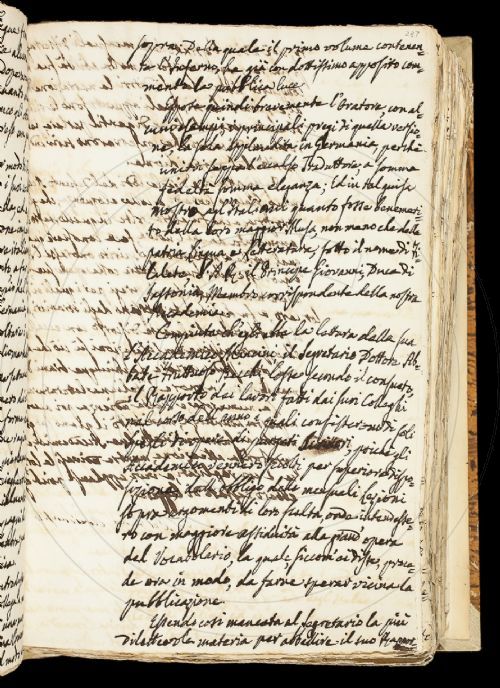 237
sopra. Della quale il primo volume contenen-
te l'Inferno, ha già con dottissimo apposito com-
mento la pubblica luce.
Espose quindi brevemente l'Oratore, con al-
cuno esempi i principali pregi di quella versio-
ne, la sola applaudita in Germania, perchè
unetrice seppe Traduttore, a somma
fedeltà somma eleganza; Ed in tal guisa
mostrò agl'Italiani quanto fosse benemeri-
to della loro maggior Musa, non meno che della
patria lingua e letteratura, sotto il nome di Fi-
lalete S. A. R. il Principe Giovanni, Duca di
Sassonia, Membro corrispondente della nostra
Accademia.
Compiuta ch'ebbe la lettura della sua
l'Accademico il Segretario Dottore Ab-
bate Fruttuoso Becchi lesse secondo il consueto,
il Rapporto dei lavori fatti dai suoi Colleghi
nel corso dell'anno, i quali consisterono di soli
spogli di opere di purgati Scrittori, poichè gli
Accademici vennero per superiore dispo-
sizione dall'obbligo delle mensuali lezioni
sopra argomenti di loro scelta, onde intendesse-
ro con maggiore assiduità alla grand'opera
del Vocabolario, la quale siccome ei disse, proce-
de ora in modo, da farne sperar vicina la
pubblicazione.
Essendo così mancata al Segretario la più
dilettevole materia per abbellire il suo Rappor-